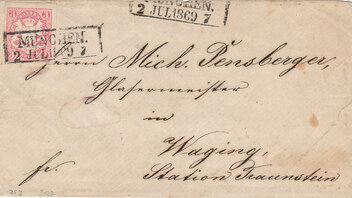 MÜNCHEN.
2 JUL 1869 7
3
MÜNCHEN.
2 JUL 1869 7
Herrn Mich. Pensberger,
Glasermeister
in
Waging,
fr. Station Traunstein